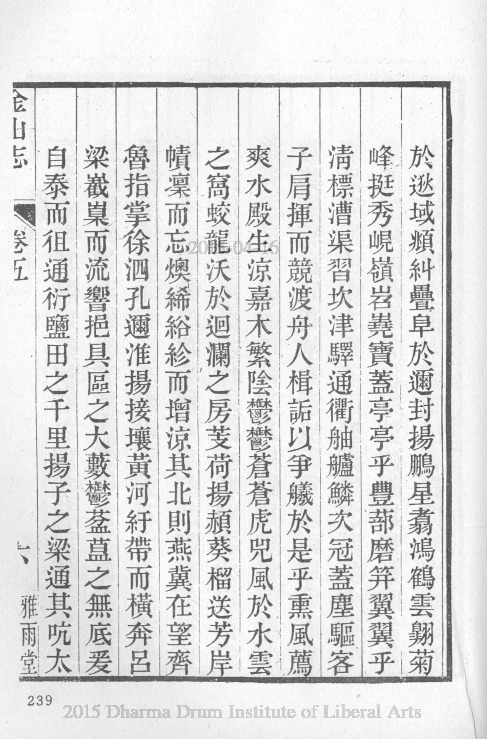 於逖域頫糾疊阜於邇封揚鵬星翥鴻鶴雲翺菊
峰挺秀峴嶺岧嶤寶蓋亭亭乎豐蔀磨筓翼翼乎
淸標漕渠習坎津驛通衢舳艫鱗次冠蓋塵驅客
子肩揮而競渡舟人楫詬以爭艤於是乎熏風薦
爽水殿生涼嘉木繁陰鬱鬱蒼蒼虎兕風於水雲
之窩蛟龍沃於迴瀾之房芰荷揚赬葵榴送芳岸
幘凜而忘燠絺綌紾而增涼其北則燕冀在望齊
魯指掌徐泗孔邇淮揚接壤黃河紆帶而橫奔呂
梁巀嶪而流響挹具區之大藪鬱葐蒀之無底爰
自泰而徂通衍鹽田之千里揚子之梁通其吭太
金山志
卷五
六
雅雨堂
239
2015 Dharma Drum Institute of Liberal Arts